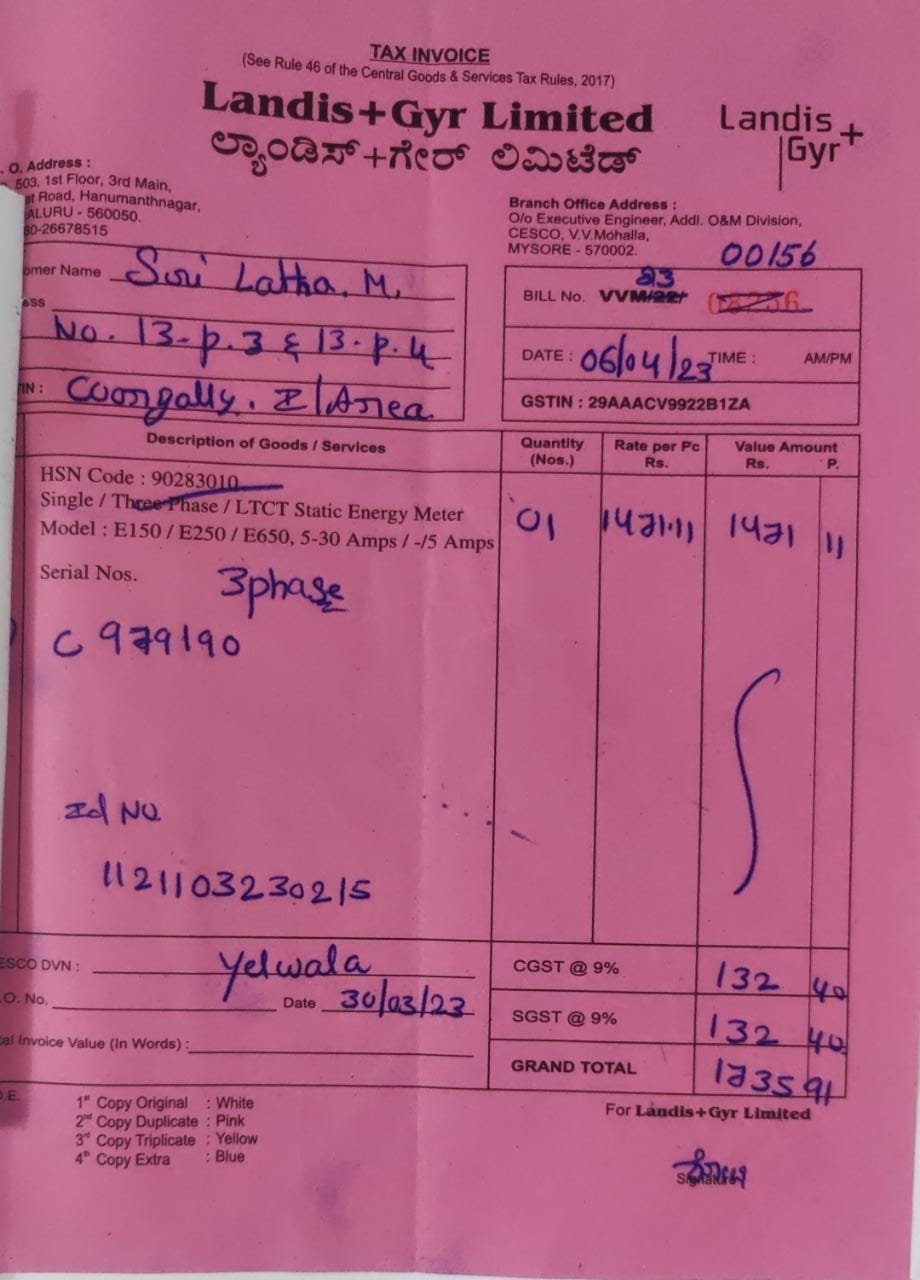 TAX INVOICE
(See Rule 46 of the Central Goods & Services Tax Rules, 2017)
Landis+Gyr Limited
ಲ್ಯಾಂಡಿಸ್+ಗೇರ್ ಲಿಮಿಟೆಡ್
Landis
Gyr+
. O. Address :
503, 1st Floor, 3rd Main,
Road, Hanumanthnagar,
ALURU - 560050.
80-26678515
Branch Office Address :
O/o Executive Engineer, Addl. O&M Division,
CESCO, V.V.Mohalla,
MYSORE - 570002.
00156
omer Name Sri Latha. M,
ess
No. 13-p.3 & 13-p.4
IN : Coorgally. I/Area
23
BILL No. VVM/22/
DATE : 06/04/23 TIME : AM/PM
GSTIN : 29AAACV9922B1ZA
Description of Goods / Services Quantity (Nos.) Rate per Pc Rs. Value Amount Rs. P.
HSN Code : 90283010
Single / Three Phase / LTCT Static Energy Meter
Model : E150 / E250 / E650, 5-30 Amps / -/5 Amps
01 1471.11 1471 11
Serial Nos. 3phase
C 979190
Id No.
1121103230215
ESCO DVN : Yelwala
.O. No. Date 30/03/23
tal Invoice Value (In Words) :
CGST @ 9% 132 40
SGST @ 9% 132 40
GRAND TOTAL 1735 91
O.E.
1st Copy Original : White
2nd Copy Duplicate : Pink
3rd Copy Triplicate : Yellow
4th Copy Extra : Blue
For Landis+Gyr Limited
Signature